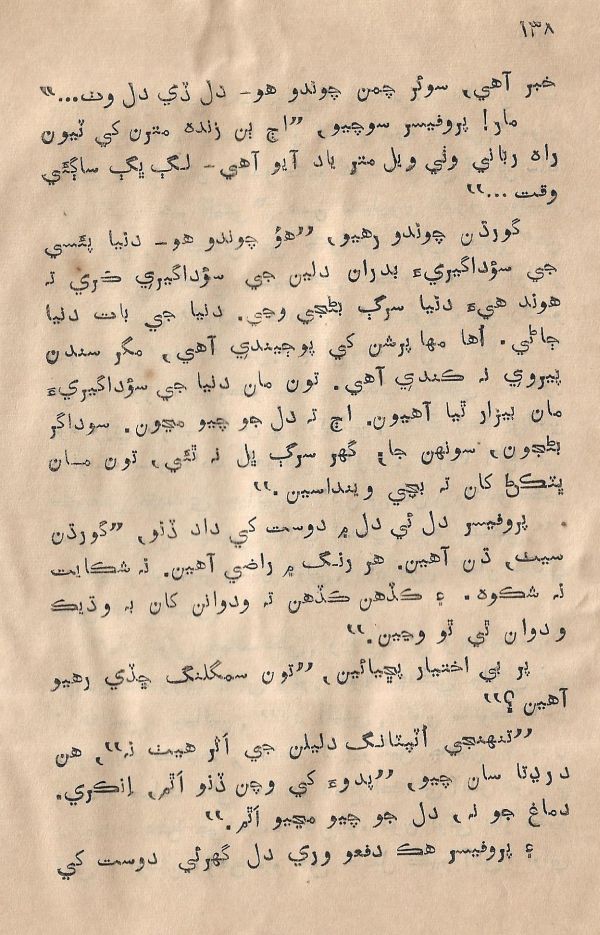 ١٣٨
خبر آهي، سوئر چمن چوندو هو- دل ڏي دل وٺ..."
مار! پروفيسر سوچيو، ”اڄ ٻن زنده مترن کي ٽيون
راه رباني وٺي ويل متر ياد آيو آهي- لڳ ڀڳ ساڳئي
وقت ...“
گورڌن چوندو رهيو، ”هؤ چوندو هو- دنيا پئسي
جي سؤداگيريءَ بدران دلين جي سؤداگيري ڪري ته
هوند هيءَ دنيا سرڳ بڻجي وڃي. دنيا جي بات دنيا
ڄاڻي. اُها مها پرشن کي پوڄيندي آهي، مگر سندن
پيروي نه ڪندي آهي. تون مان دنيا جي سؤداگيريءَ
مان بيزار ٿيا آهيون. اڄ ته دل جو چيو مڃون. سوداگر
بڻجون، سونهن جا؛ گهر سرڳ ڀل نه ٿئي، تون مان
ڀٽڪڻ کان ته بچي وينداسين.“
پروفيسر دل ئي دل ۾ دوست کي داد ڏنو، ”گورڌن
سيٺ، ڌن آهين. هر رنگ ۾ راضي آهين. نه شڪايت
نه شڪوه. ۽ ڪڏهن ڪڏهن ته ودوانن کان به وڌيڪ
ودوان ٿي ٿو وڃين.“
پر بي اختيار پڇيائين، ”تون سمگلنگ ڇڏي رهيو
آهين؟“
”تنهنجي اُٽپٽانگ دليلن جي اَثر هيٺ نه“، هن
درڍتا سان چيو، ”پدوءَ کي وچن ڏنو اَٿم، اِنڪري.
دماغ جو نه، دل جو چيو مڃيو اَٿم.“
۽ پروفيسر هڪ دفعو وري دل گهرئي دوست کي